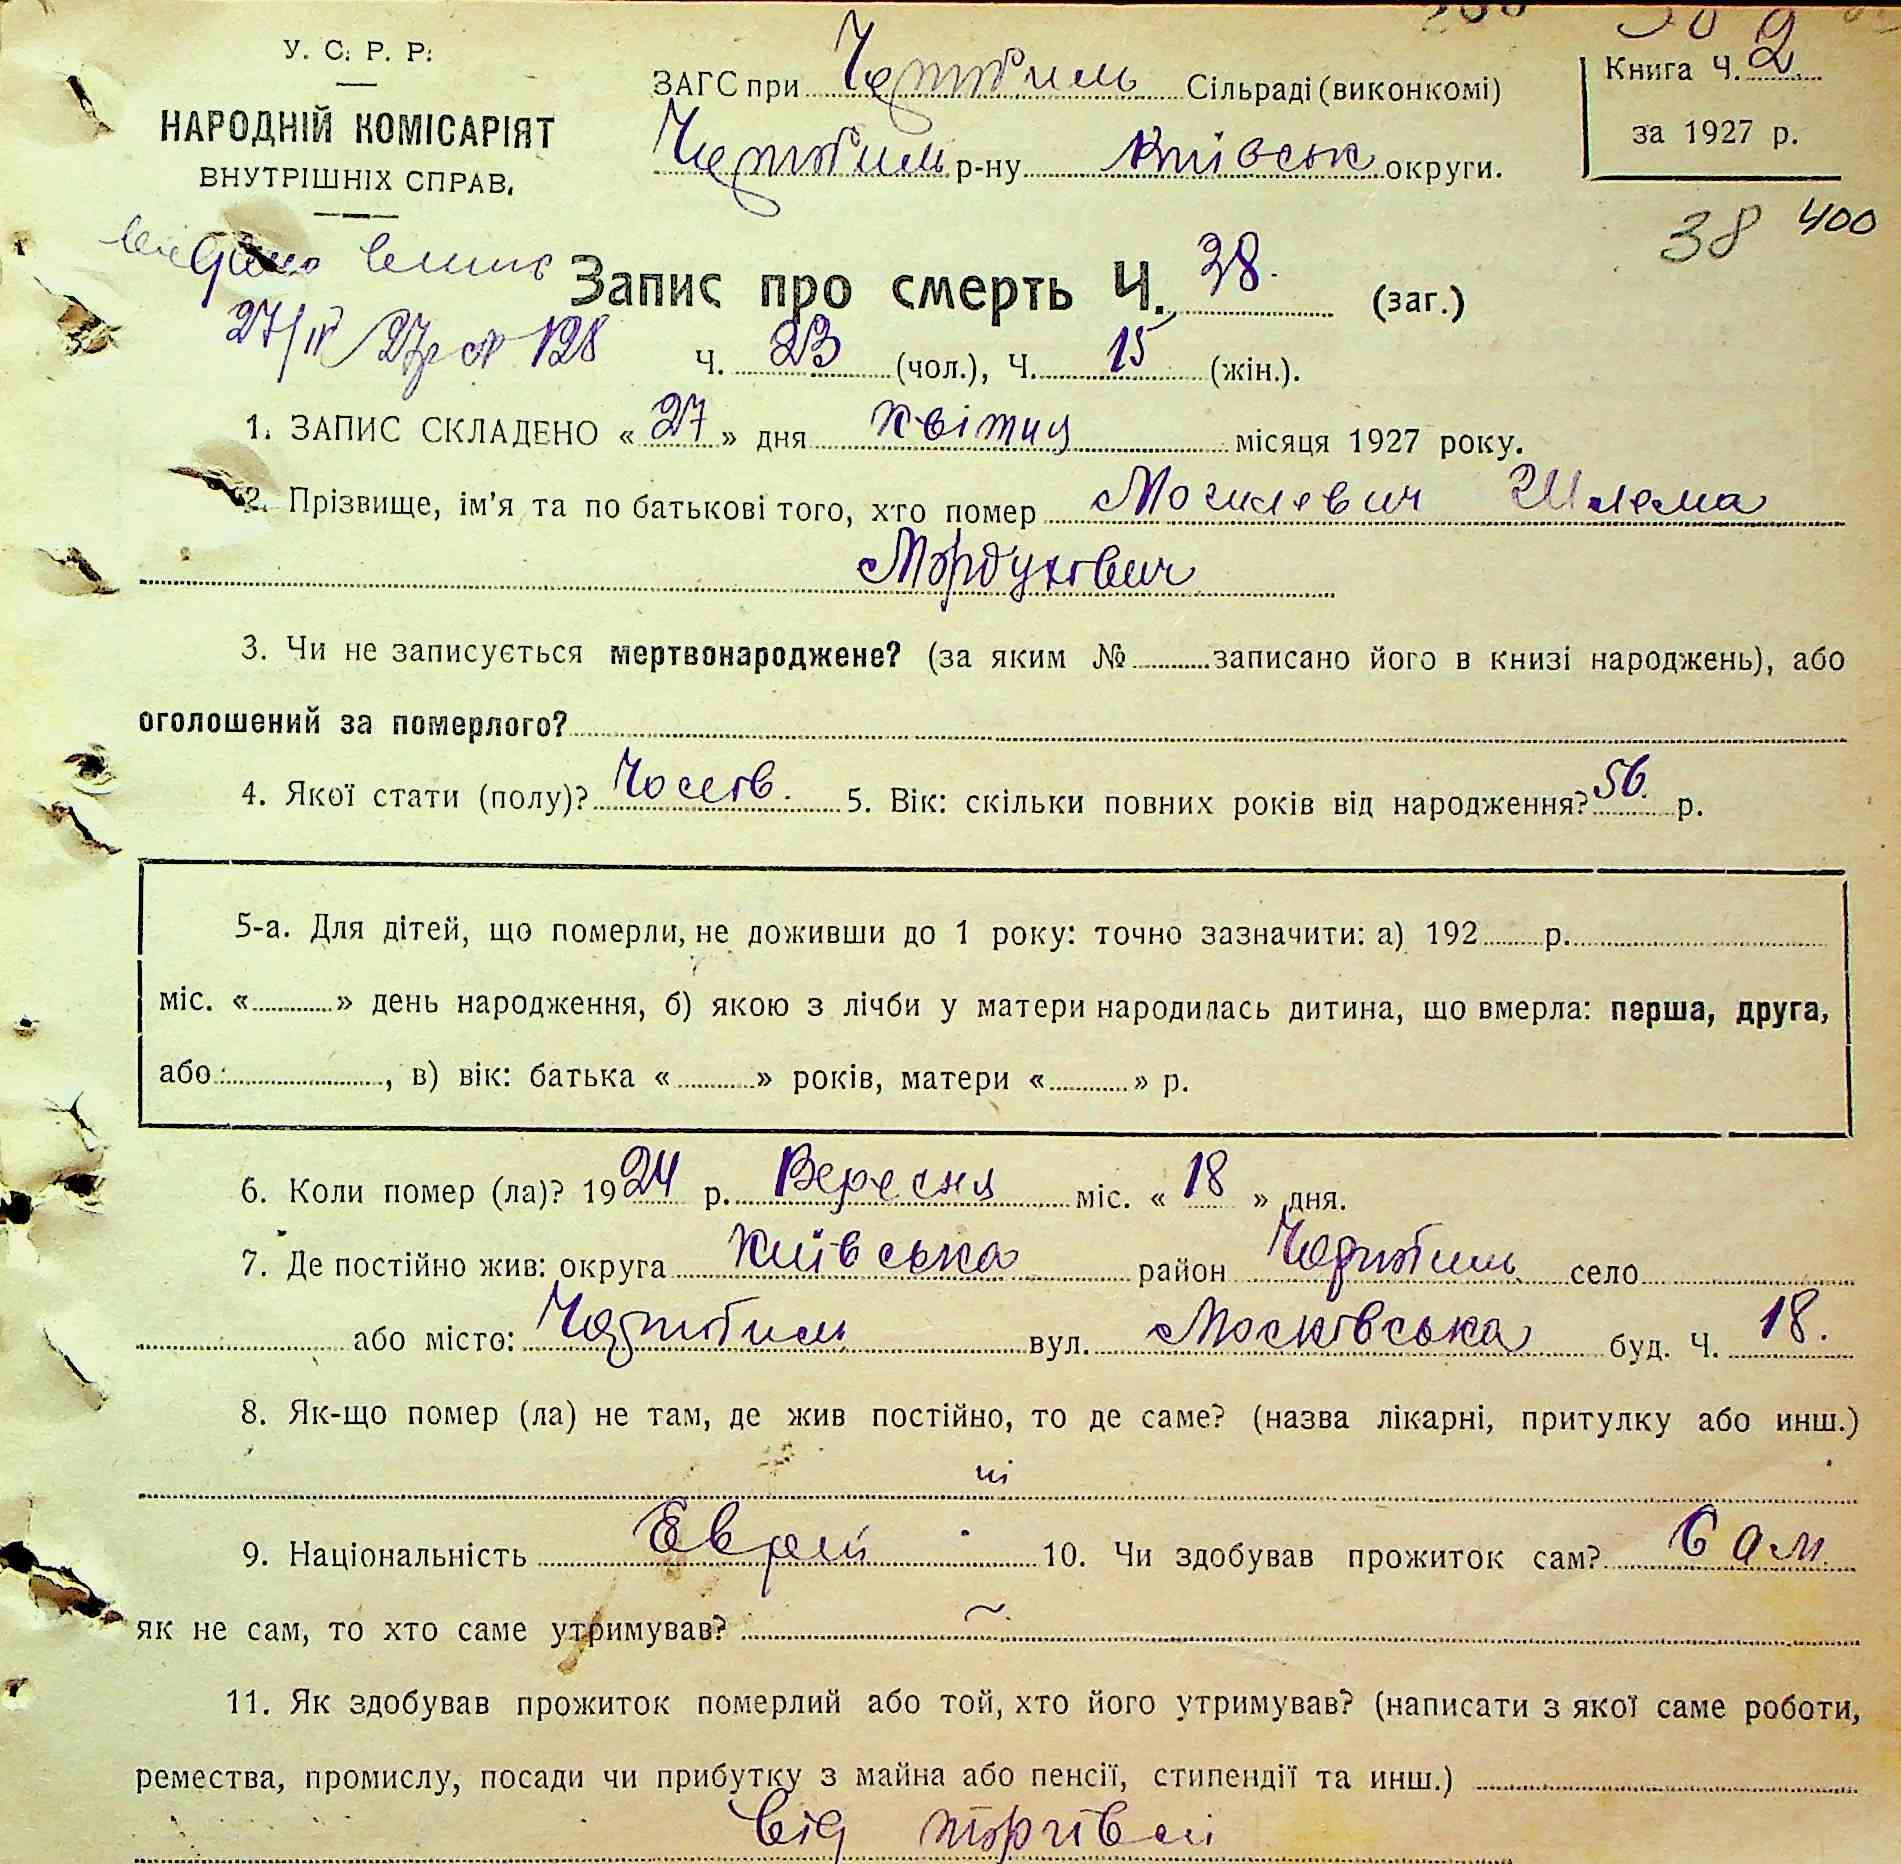 У. С. Р. Р.
НАРОДНІЙ КОМІСАРІЯТ
ВНУТРІШНІХ СПРАВ.
ЗАГС при Чернобиль Сільраді (виконкомі)
Чернобиль р-ну Київськ округи.
Книга Ч. 2
за 1927 р.
38 400
видано
27/IV 27р № 128
Запис про смерть Ч. 38. (заг.)
Ч. 23 (чол.), Ч. 15 (жін.).
1. ЗАПИС СКЛАДЕНО « 27 » дня квітня місяця 1927 року.
2. Прізвище, ім'я та по батькові того, хто помер Могилевич Шлема
Мордухович
3. Чи не записується мертвонароджене? (за яким № записано його в книзі народжень), або
оголошений за померлого?
4. Якої стати (полу)? Чолов. 5. Вік: скільки повних років від народження? 56 р.
5-а. Для дітей, що померли, не доживши до 1 року: точно зазначити: а) 192 р.
міс. « » день народження, б) якою з лічби у матери народилась дитина, що вмерла: перша, друга,
або , в) вік: батька « » років, матери « » р.
6. Коли помер (ла)? 1924 р. Вересня міс. « 18 » дня.
7. Де постійно жив: округа Київська район Чорнобиль село
або місто: Чорнобиль вул. Московська буд. Ч. 18.
8. Як-що помер (ла) не там, де жив постійно, то де саме? (назва лікарні, притулку або инш.)
ні
9. Національність Еврей 10. Чи здобував прожиток сам? Сам
як не сам, то хто саме утримував? ~
11. Як здобував прожиток померлий або той, хто його утримував? (написати з якої саме роботи,
ремества, промислу, посади чи прибутку з майна або пенсії, стипендії та инш.)
від торгівлі